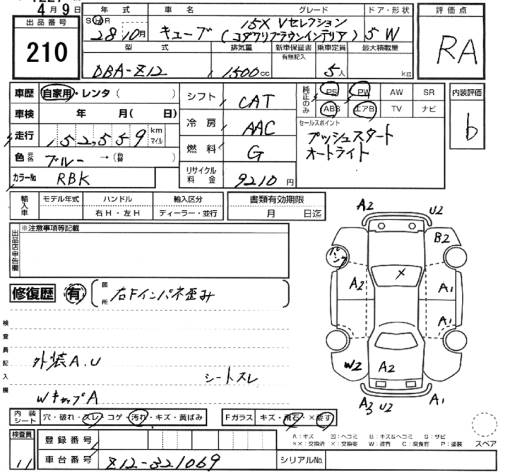 4月9日
出品番号
210
年式
車名
グレード
ドア・形状
評価点
28年10月
キューブ
15X Vセレクション
(コダワリブラウンインテリア)
5W
RA
型式
排気量
新車保証書
有無記入
乗車定員
最大積載量
DBA-Z12
1500cc
5人
kg
車歴
自家用・レンタ( )
車検
年 月( 日)
走行
152,559
km
マイル
色
ブルー →
カラーNo
RBK
シフト
CAT
冷房
AAC
燃料
G
リサイクル
料金
9210円
純正のみ
PS
PW
AW
SR
ABS
エアB
TV
ナビ
内装評価
b
セールスポイント
プッシュスタート
オートライト
輸入車
モデル年式
ハンドル
輸入区分
右H・左H
ディーラー・並行
書類有効期限
月 日迄
出品店申告欄
※注意事項等記載
修復歴
有
箇所
右Fインパネ歪み
検査員記入欄
外装A.U
シートスレ
WキャップA
A2
U2
パンク
B2
X
A2
A1
A2
A1
W2
A2
A3
U2
A1
内装
シート
穴・破れ・スレ・コゲ・汚れ・キズ・黄ばみ
Fガラス
キズ・飛石・
スペア
検査員
11
登録番号
車台番号
Z12-321069
シリアルNo.